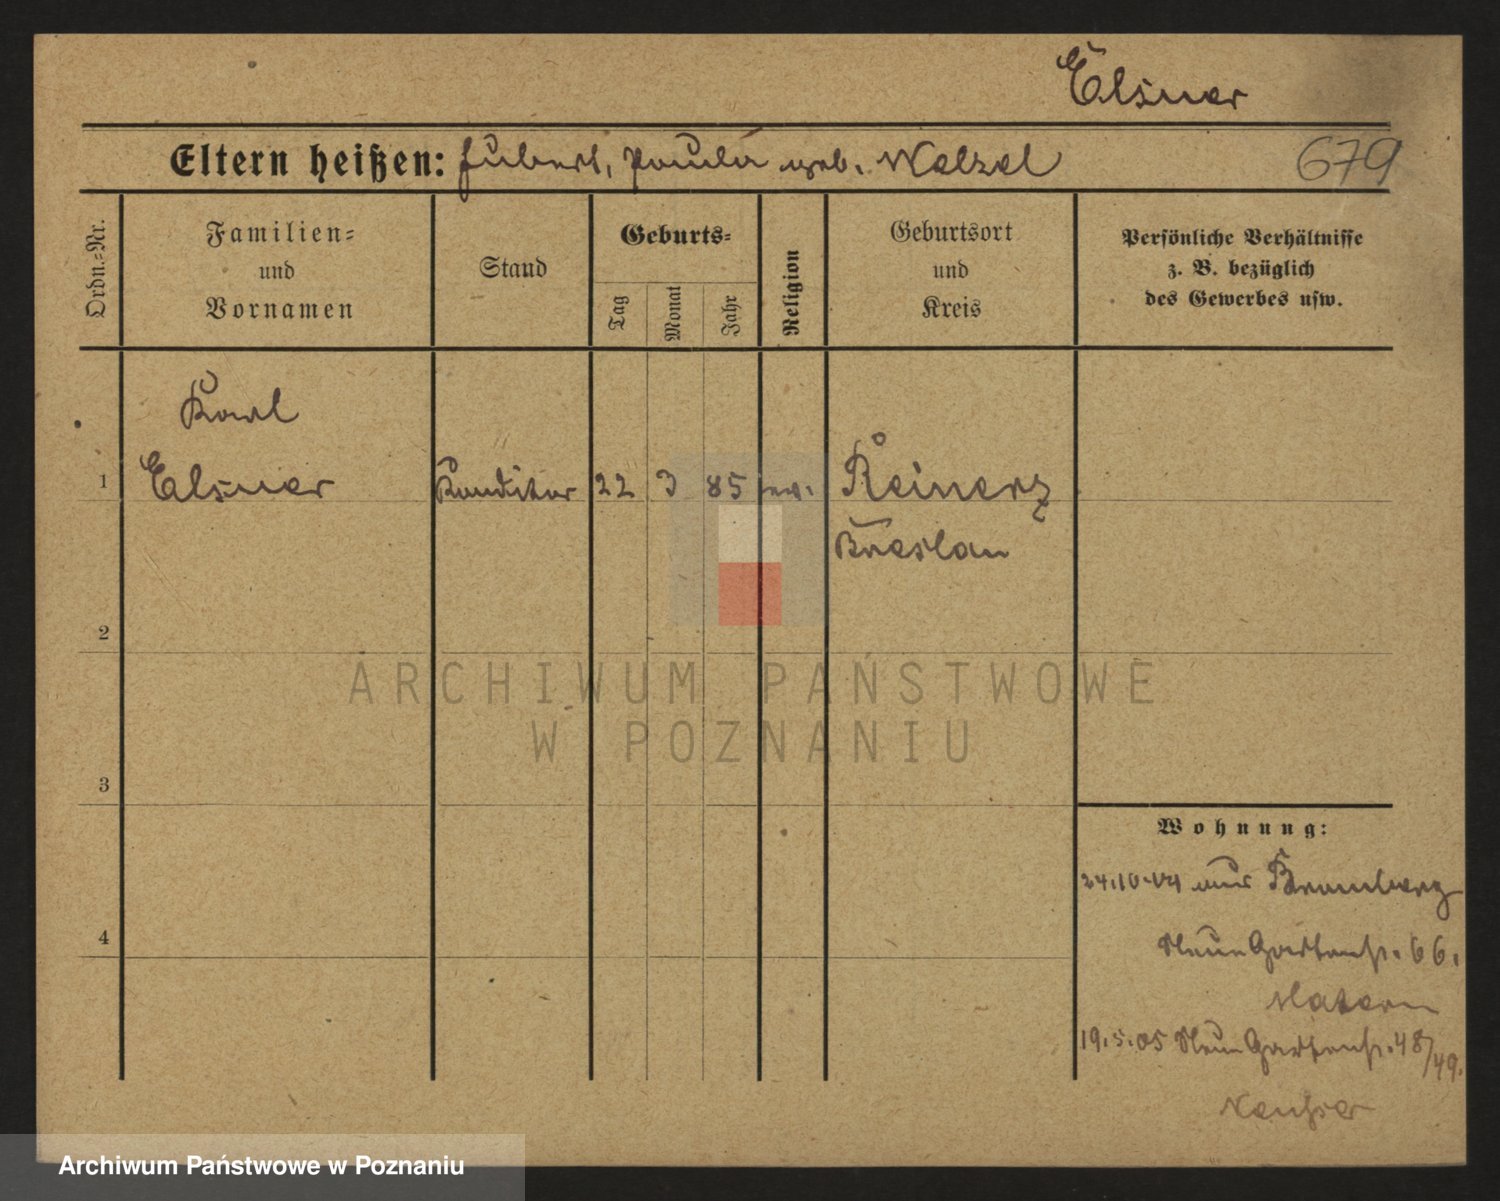 Elsner
Eltern heißen: Hubert, Paula geb. Welzel
679
Ordn.=Nr.
Familien=
und
Vornamen
Stand
Geburts=
Tag
Monat
Jahr
Religion
Geburtsort
und
Kreis
Persönliche Verhältnisse
z. B. bezüglich
des Gewerbes usw.
Karl
1 Elsner Konditor 22 3 85 Reinerz
Breslau
2
3
4
Wohnung:
24.10.04 aus Bromberg
Neue Gartenstr. 66.
Matern
19.5.05 Neue Gartenstr. 48/49.
ARCHIWUM PAŃSTWOWE
W POZNANIU
Archiwum Państwowe w Poznaniu